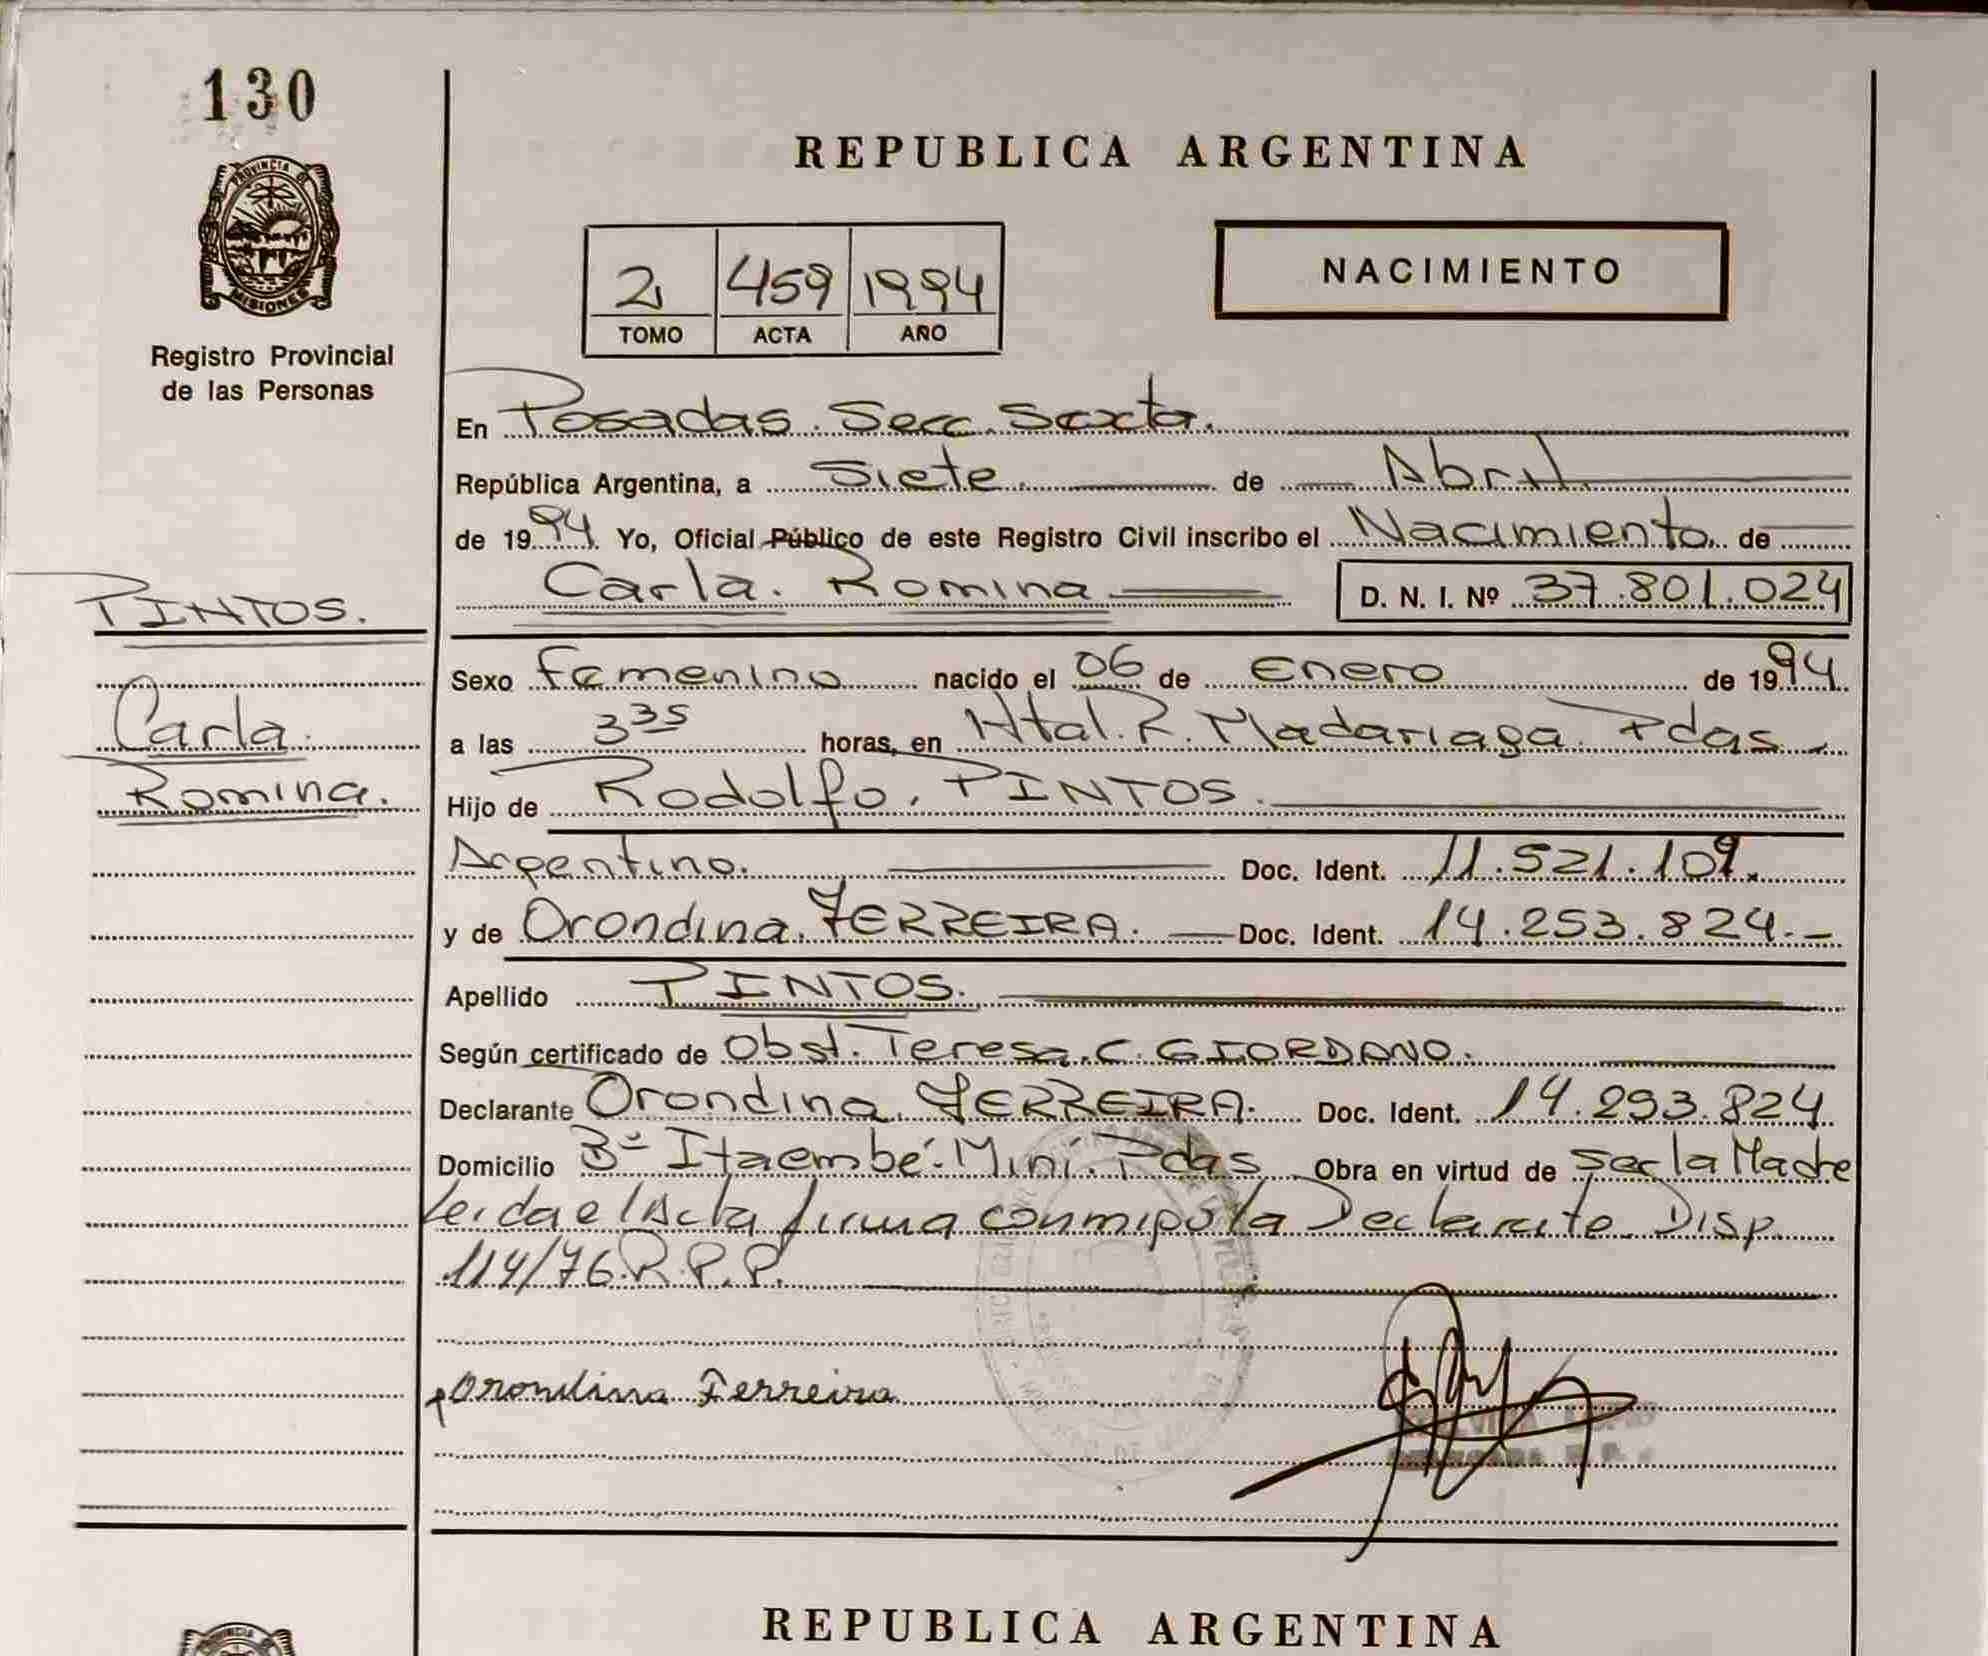 130
PROVINCIA DE
MISIONES
Registro Provincial
de las Personas
REPUBLICA ARGENTINA
2 459 1994
TOMO ACTA AÑO
NACIMIENTO
En Posadas. Secc. Sexta.
República Argentina, a Siete. de Abril.
de 1994. Yo, Oficial Público de este Registro Civil inscribo el Nacimiento. de
Carla. Romina D. N. I. Nº 37.801.024
PINTOS.
Carla.
Romina.
Sexo Femenino nacido el 06 de Enero de 1994.
a las 3 35 horas, en Htal. R. Madariaga. Pdas
Hijo de Rodolfo. PINTOS.
Argentino. Doc. Ident. 11.521.109.
y de Orondina. FERREIRA. Doc. Ident. 14.253.824.-
Apellido PINTOS.
Según certificado de Obst. Teresa. C. GIORDANO.
Declarante Orondina. FERREIRA. Doc. Ident. 14.293.824
Domicilio Bº Itaembé. Miní. Pdas Obra en virtud de ser la Madre
Leida el Acta firma conmigo la Declarante. Disp.
114/76.R.P.P.
Orondina Ferreira
REPUBLICA ARGENTINA